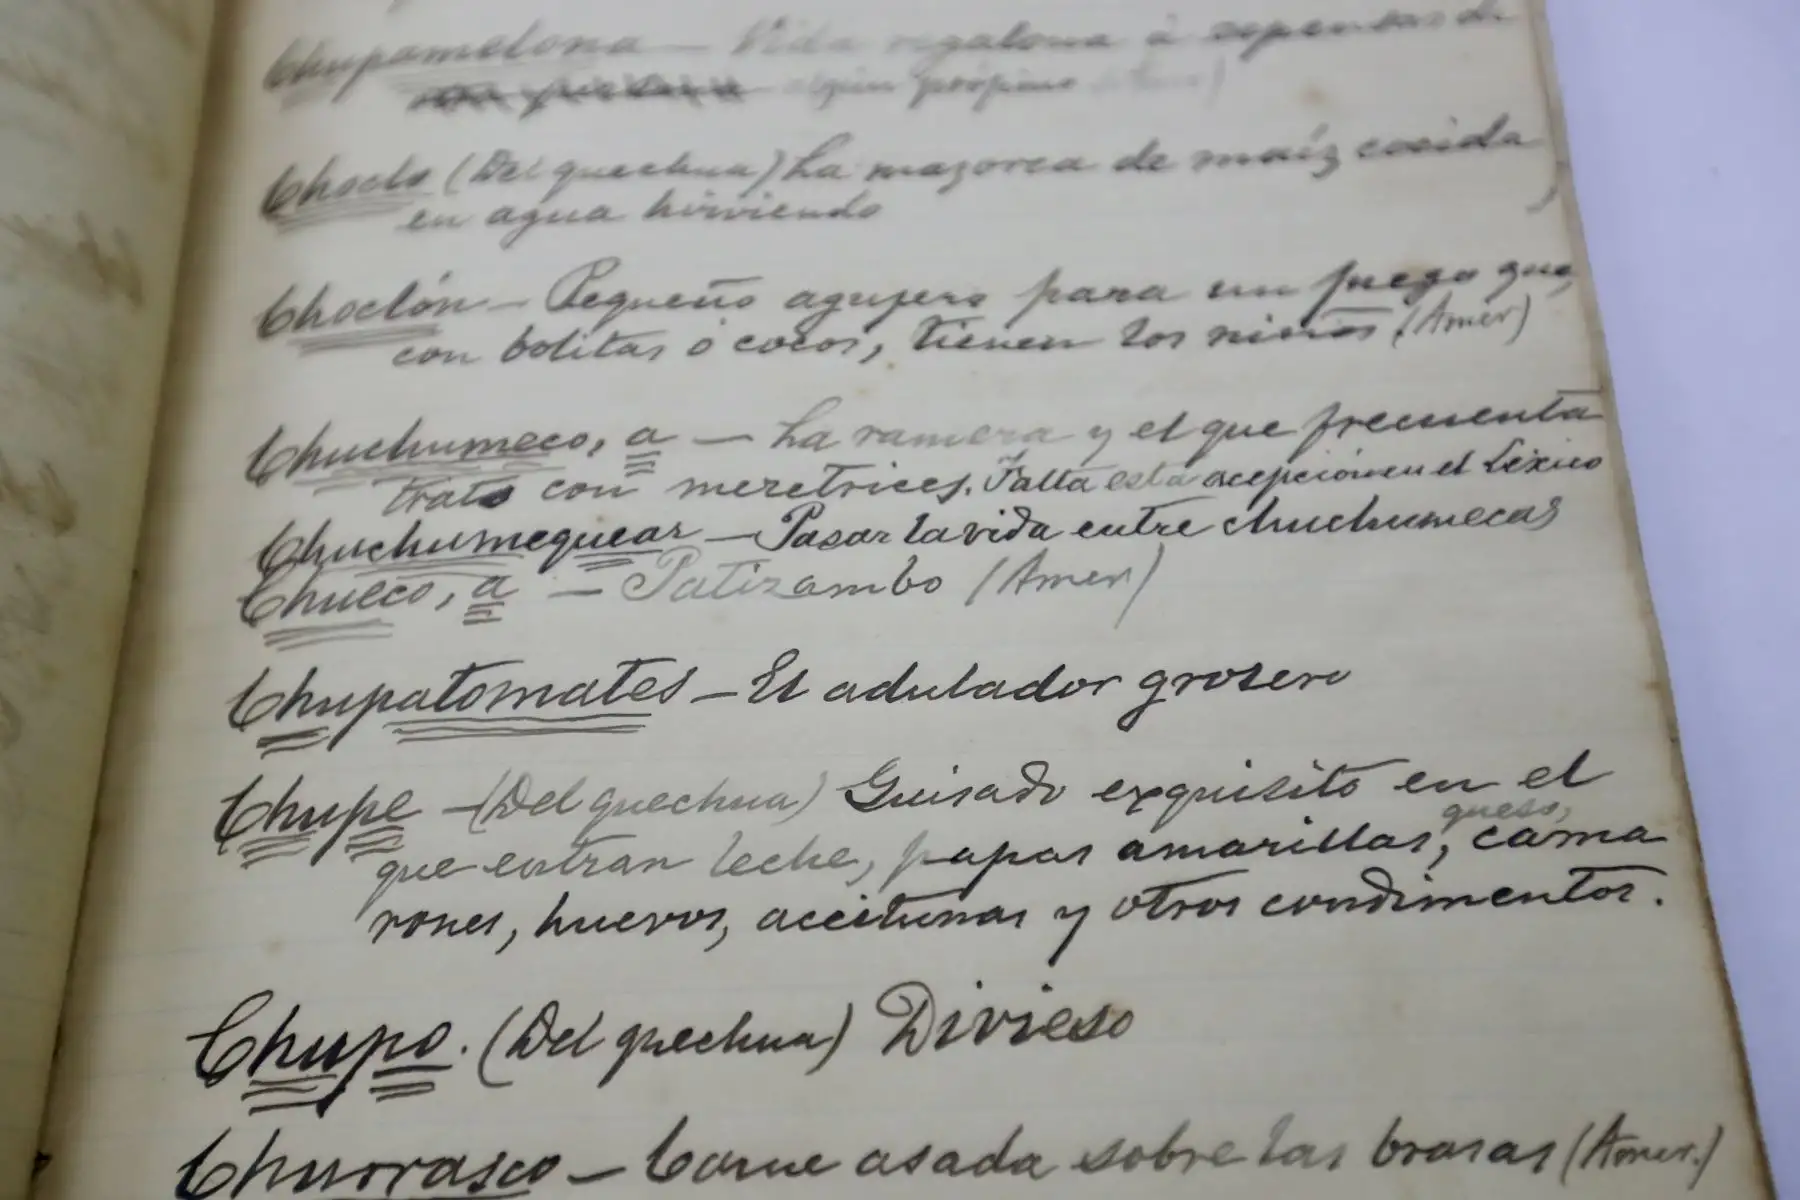 Chupamelona — Vida regalona á expensas de
algún prójimo
Choclo (Del quechua) La mazorca de maíz cocida
en agua hirviendo
Choclón — Pequeño agujero para un juego que,
con bolitas ó cocos, tienen los niños (Amer)
Chuchumeco, a — La ramera y el que frecuenta
trato con meretrices. Falta esta acepción en el Léxico
Chuchumequear — Pasar la vida entre chuchumecas
Chueco, a — Patizambo (Amer)
Chupatomates — El adulador grosero
Chupe — (Del quechua) Guisado exquisito en el
queso,
que entran leche, papas amarillas, cama
rones, huevos, aceitunas y otros condimentos.
Chupo. (Del quechua) Divieso
Churrasco — Carne asada sobre las brasas (Amer.)